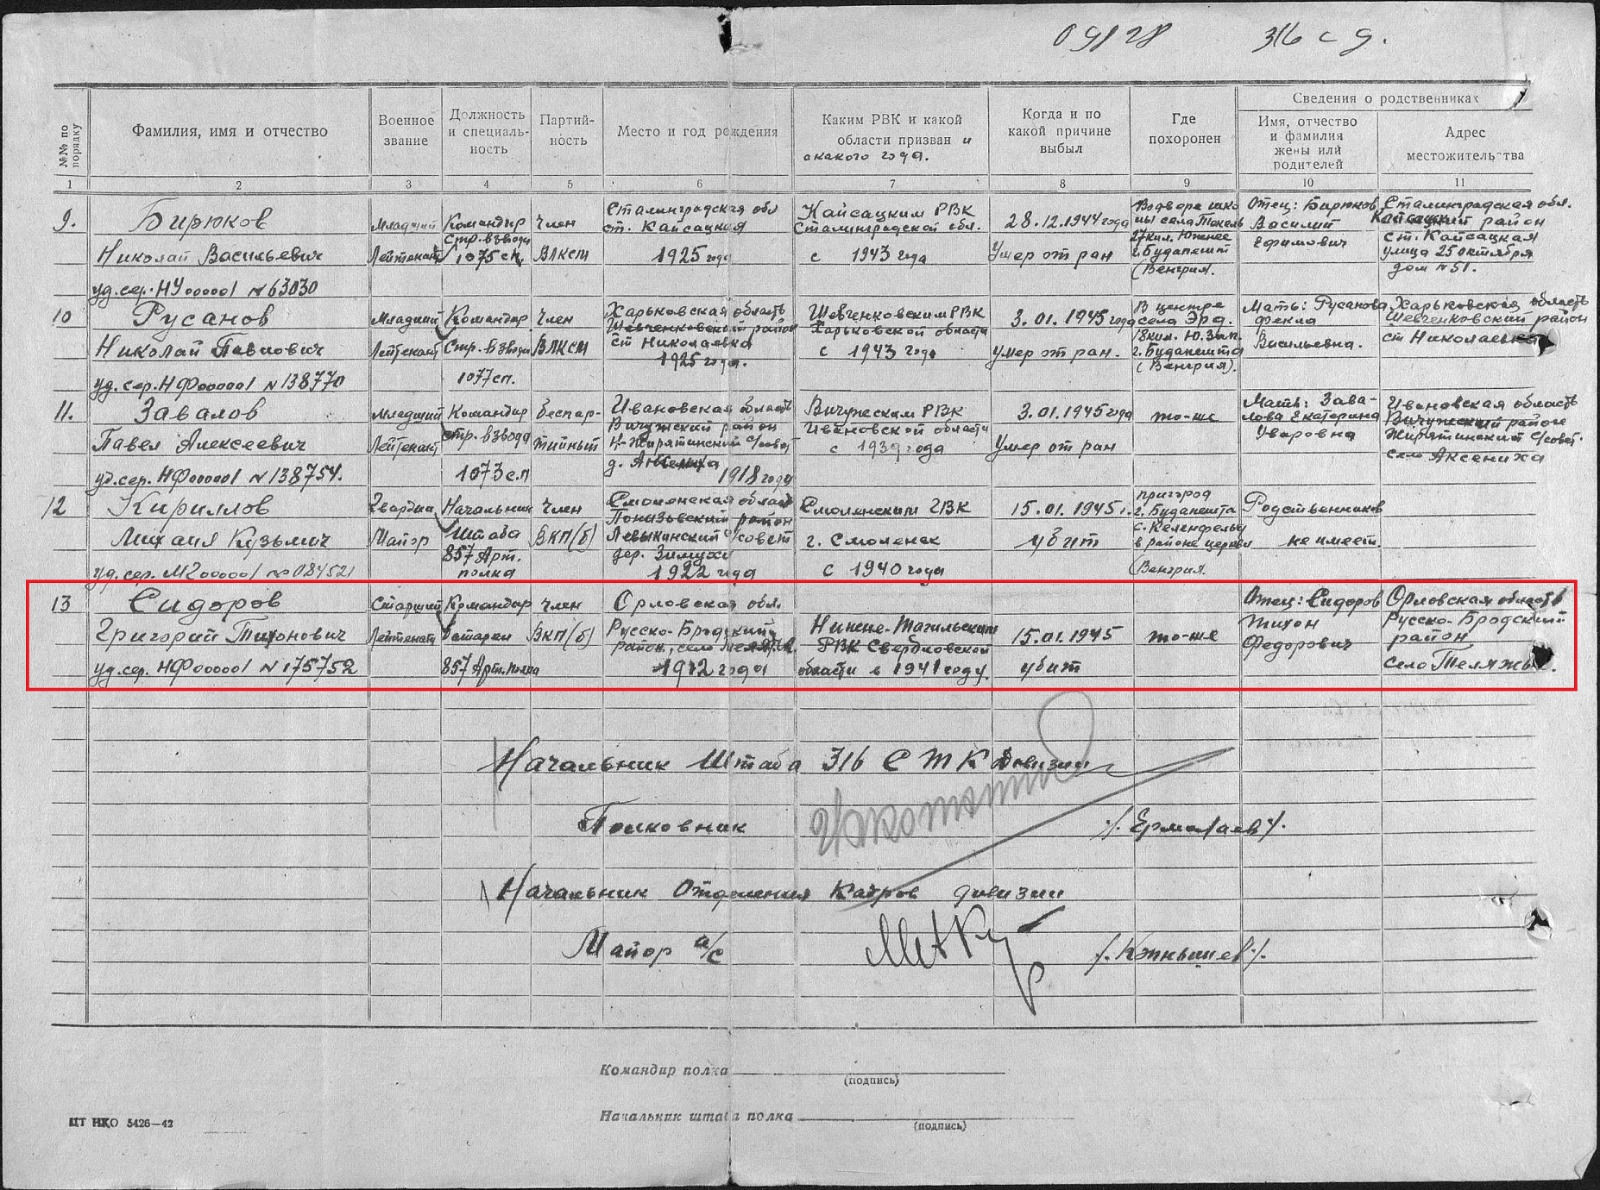 09128 316 с д.
№№ по порядку
Фамилия, имя и отчество
Военное звание
Должность и специаль- ность
Партий- ность
Место и год рождения
Каким РВК и какой области призван и с какого года.
Когда и по какой причине выбыл
Где похоронен
Сведения о родственниках
Имя, отчество и фамилия жены или родителей
Адрес местожительства
1 2 3 4 5 6 7 8 9 10 11
9. Бирюков Николай Васильевич уд.сер. НУ 000001 № 63030
Младший Лейтенант
Командир Стр. взвода 1075 сп.
Член ВЛКСМ
Сталинградская обл ст. Кайсацкая 1925 года
Кайсацким РВК Сталинградской обл. с 1943 года
28.12.1944 года Умер от ран
Во дворе шко- лы села 27 км. Южнее г. Будапешт (Венгрия.
Отец: Бирюков Василий Ефимович
Сталинградская обл. Кайсацкий район ст. Кайсацкая улица 25 октября дом № 51.
10 Русанов Николай Павлович уд. сер. НФ 000001 № 138770
Младший Лейтенант
Командир Стр. взвода 1077 сп.
Член ВЛКСМ
Харьковская область Шевченковский район ст Николаевка 1925 года.
Шевченковским РВК Харьковской области с 1943 года
3.01.1945 года умер от ран.
В центре села Эрд. 18 км. Ю. Зап. г. Будапешта (Венгрия).
Мать: Русанова Фекла Васильевна.
Харьковская область Шевченковский район ст Николаевка
11. Завалов Павел Алексеевич уд. сер. НФ 000001 № 138754.
Младший Лейтенант
Командир Стр. взвода 1073 сп
беспар- тийный
Ивановская область Вичужский район Н-Жирятинский с/совет д. 1918 года
Вичужским РВК Ивановской области с 1939 года
3.01.1945 года Умер от ран
то-же
Мать: Зава- лова Екатерина Уваровна
Ивановская область Вичужский район Жирятинский с/совет. село Аксениха
12 Кириллов Михаил Кузьмич уд. сер. МГ 000001 № 084521
Гвардии Майор
Начальник Штаба 857 Арт. полка
Член ВКП(б)
Смоленская область Понизовский район Левыкинский с/совет дер. Зимухи 1922 года
Смоленским ГВК г. Смоленск с 1940 года
15.01.1945 г. убит
пригород г. Будапешта с. Келенфельд в районе церкви (Венгрия.
Родственников не имеет.
13 Сидоров Григорий Тихонович уд. сер. НФ 000001 № 175752
Старший Лейтенант
Командир батареи 857 Арт. полка
Член ВКП(б)
Орловская обл. Русско-Бродский район, село 1912 года
Нижне-Тагильским РВК Свердловской области в 1941 году.
15.01.1945 убит
то-же
Отец: Сидоров Тихон Федорович
Орловская область Русско-Бродский район село Теляжье.
Начальник Штаба 316 СТК Дивизии
Полковник /. Ермолаев /.
Начальник Отделения Кадров дивизии
Майор а/с /. Конышев /.
Командир полка
(подпись)
Начальник штаба полка
(подпись)
ЦТ НКО 5426—42